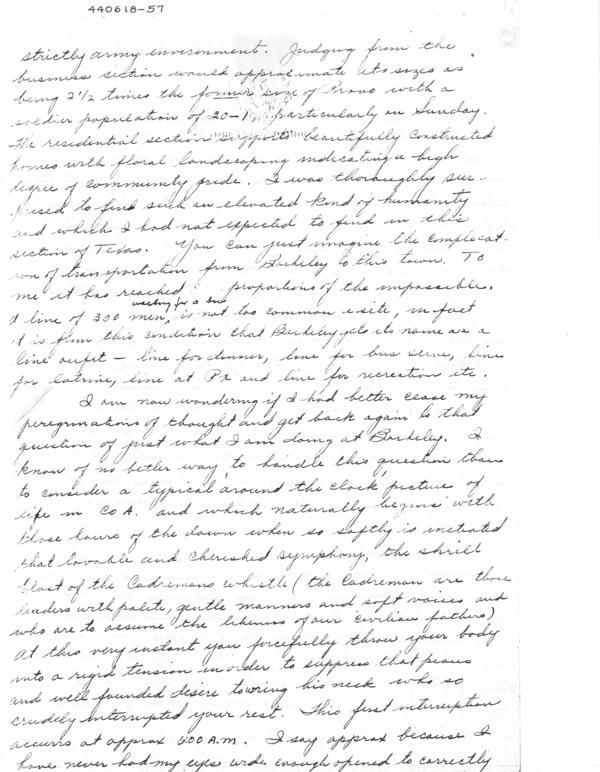 440618-57
strictly army environment. Judging from the
business section would approximate its sizes as
being 2 1/2 times the former size of Provo with a
soldier population of 20-1 particularly on Sunday.
The residential section supports beautifully constructed
homes with floral landscaping indicating a high
degree of community pride. I was thoroughly sur-
prised to find such an elevated kind of humanity
and which I had not expected to find in this
section of Texas. You can just imagine the complicat-
ion of transportation from Barkeley to this town. To
me it has reached proportions of the impossible.
waiting for a bus
A line of 300 men, is not too common a site, in fact
it is from this condition that Barkeley gets its name as a
line outfit - line for dinner, line for bus serve, line
for latrine, line at Px and line for recreation etc.
I am now wondering if I had better cease my
peregrinations of thought and get back again to that
question of just what I am doing at Barkeley. I
know of no better way to handle this question than
to consider a typical around the clock picture of
life in Co A. and which naturally begins with
those hours of the dawn when so softly is
that lovable and cherished symphony, the shrill
blast of the Cadremans whistle (the Cadreman are those
leaders with polite, gentle manners and soft voices and
who are to assume the likeness of our civilian fathers)
At this very instant you forcefully throw your body
into a rigid tension in order to suppress that pious
and well founded desire to wring his neck who so
crudely interrupted your rest. This first interruption
accurrs at approx 6:00 A.M. I say approx because I
have never had my eyes wide enough opened to correctly